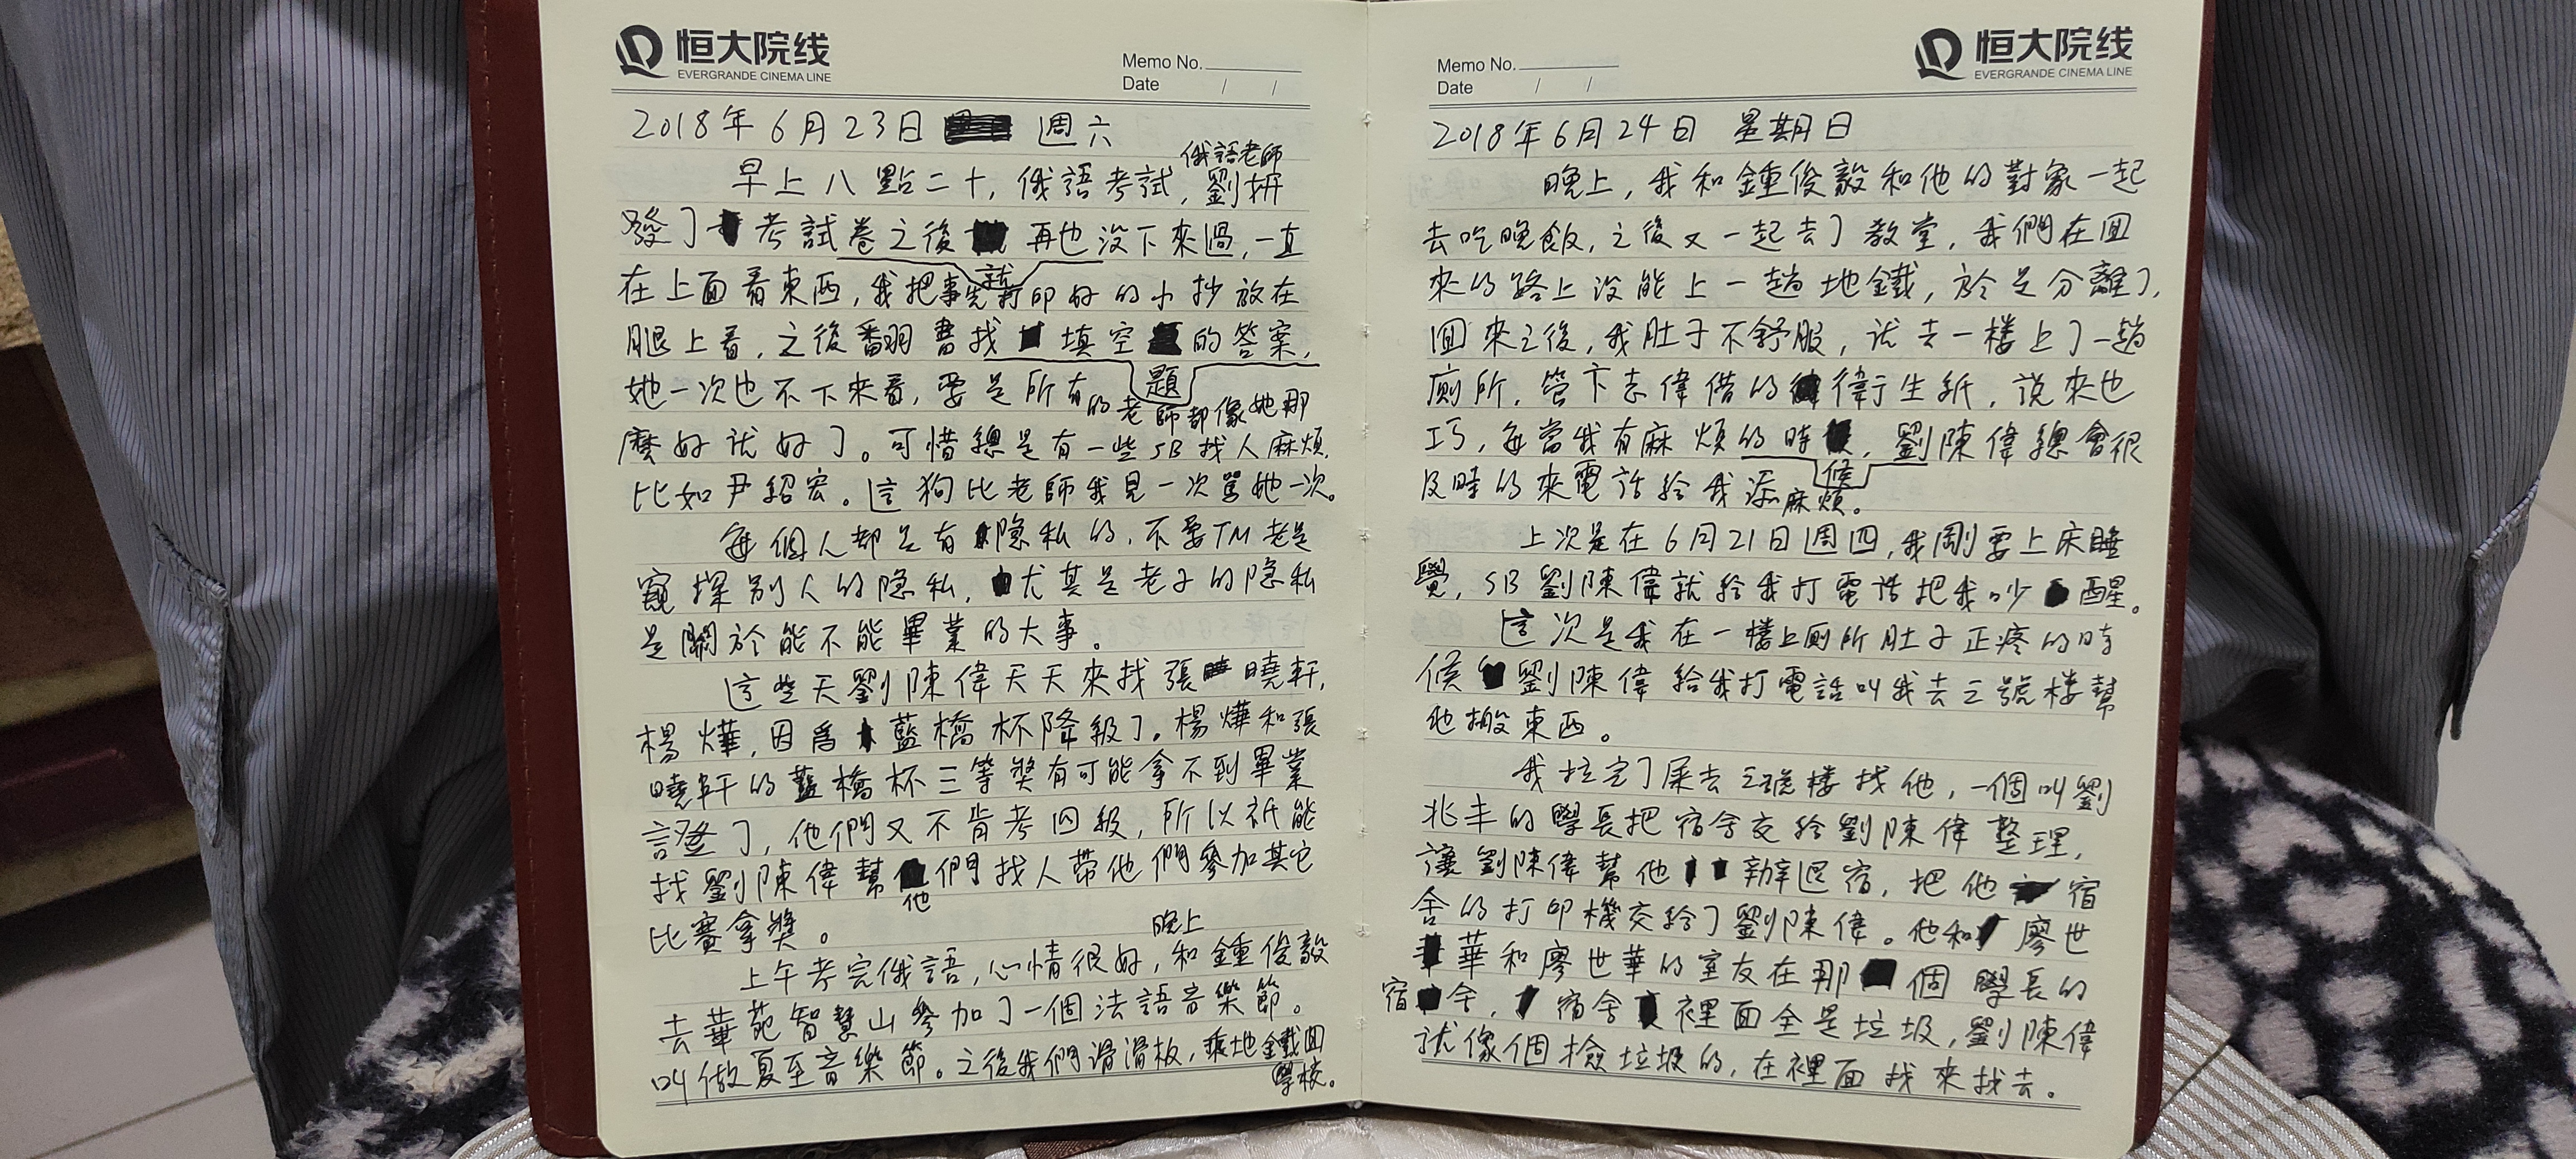 恒大院线
EVERGRANDE CINEMA LINE
Memo No.
Date / /
2018年6月23日 週六
俄語老師
早上八點二十，俄語考試，劉
發了考試卷之後再也没下來過，一直
就
在上面看東西，我把事先打印好的小抄放在
腿上看，之後翻書找填空的答案，
題
她一次也不下來看，要是所有的老師都像她那
麼好就好了。可惜總是有一些SB找人麻煩，
比如尹紹宏。這狗比老師我見一次罵她一次。
每個人都是有隐私的，不要TM老是
窺探别人的隐私，尤其是老子的隐私
是關於能不能畢業的大事。
這些天劉陳偉天天來找張曉軒，
楊燁，因爲藍橋杯降級了。楊燁和張
曉軒的藍橋杯三等獎有可能拿不到畢業
證了，他們又不肯考四級，所以祇能
找劉陳偉幫們找人带他們參加其它
他
比賽拿獎。
晚上
上午考完俄語，心情很好，和鍾俊毅
去華苑智慧山參加了一個法語音樂節。
叫做夏至音樂節。之後我們滑滑板，乘地鐵回
學校。
恒大院线
EVERGRANDE CINEMA LINE
Memo No.
Date / /
2018年6月24日 星期日
晚上，我和鍾俊毅和他的對象一起
去吃晚飯，之後又一起去了教堂，我們在回
來的路上没能上一趟地鐵，於是分離了，
回來之後，我肚子不舒服，就去一楼上了一趟
廁所，管卞志偉借的衛生紙，説來也
巧，每當我有麻煩的時，劉陳偉總會很
候
及時的來電話給我添麻煩。
上次是在6月21日週四，我剛要上床睡
覺，SB劉陳偉就給我打電話把我吵醒。
這次是我在一樓上廁所肚子正疼的時
候劉陳偉給我打電話叫我去三號楼幫
他搬東西。
我拉完了屎去三號樓找他，一個叫劉
兆丰的學長把宿舍交給劉陳偉整理，
讓劉陳偉幫他辦退宿，把他宿
舍的打印機交給了劉陳偉。他和廖世
華和廖世華的室友在那個學長的
宿舍，宿舍裡面全是垃圾，劉陳偉
就像個撿垃圾的，在裡面找來找去。